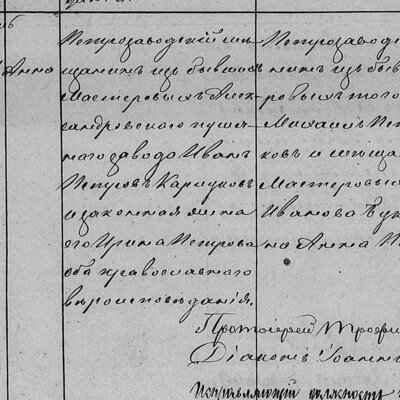 Анна
Петрозаводскій мѣ-
щанинъ изъ бывшихъ
Мастеровыхъ Алек-
сандровскаго пушеч-
наго завода Иванъ
Петровъ
и законная жена
его Ирина Петрова
оба православнаго
вѣроисповѣданія.
Петрозаводс
нинъ изъ быв
ровыхъ того
Михаилъ Пет
ковъ и мѣща
Мастеровы
Иванова
на Анна
Протоіерей
Діаконъ Іоаннъ
Исправляющій должность